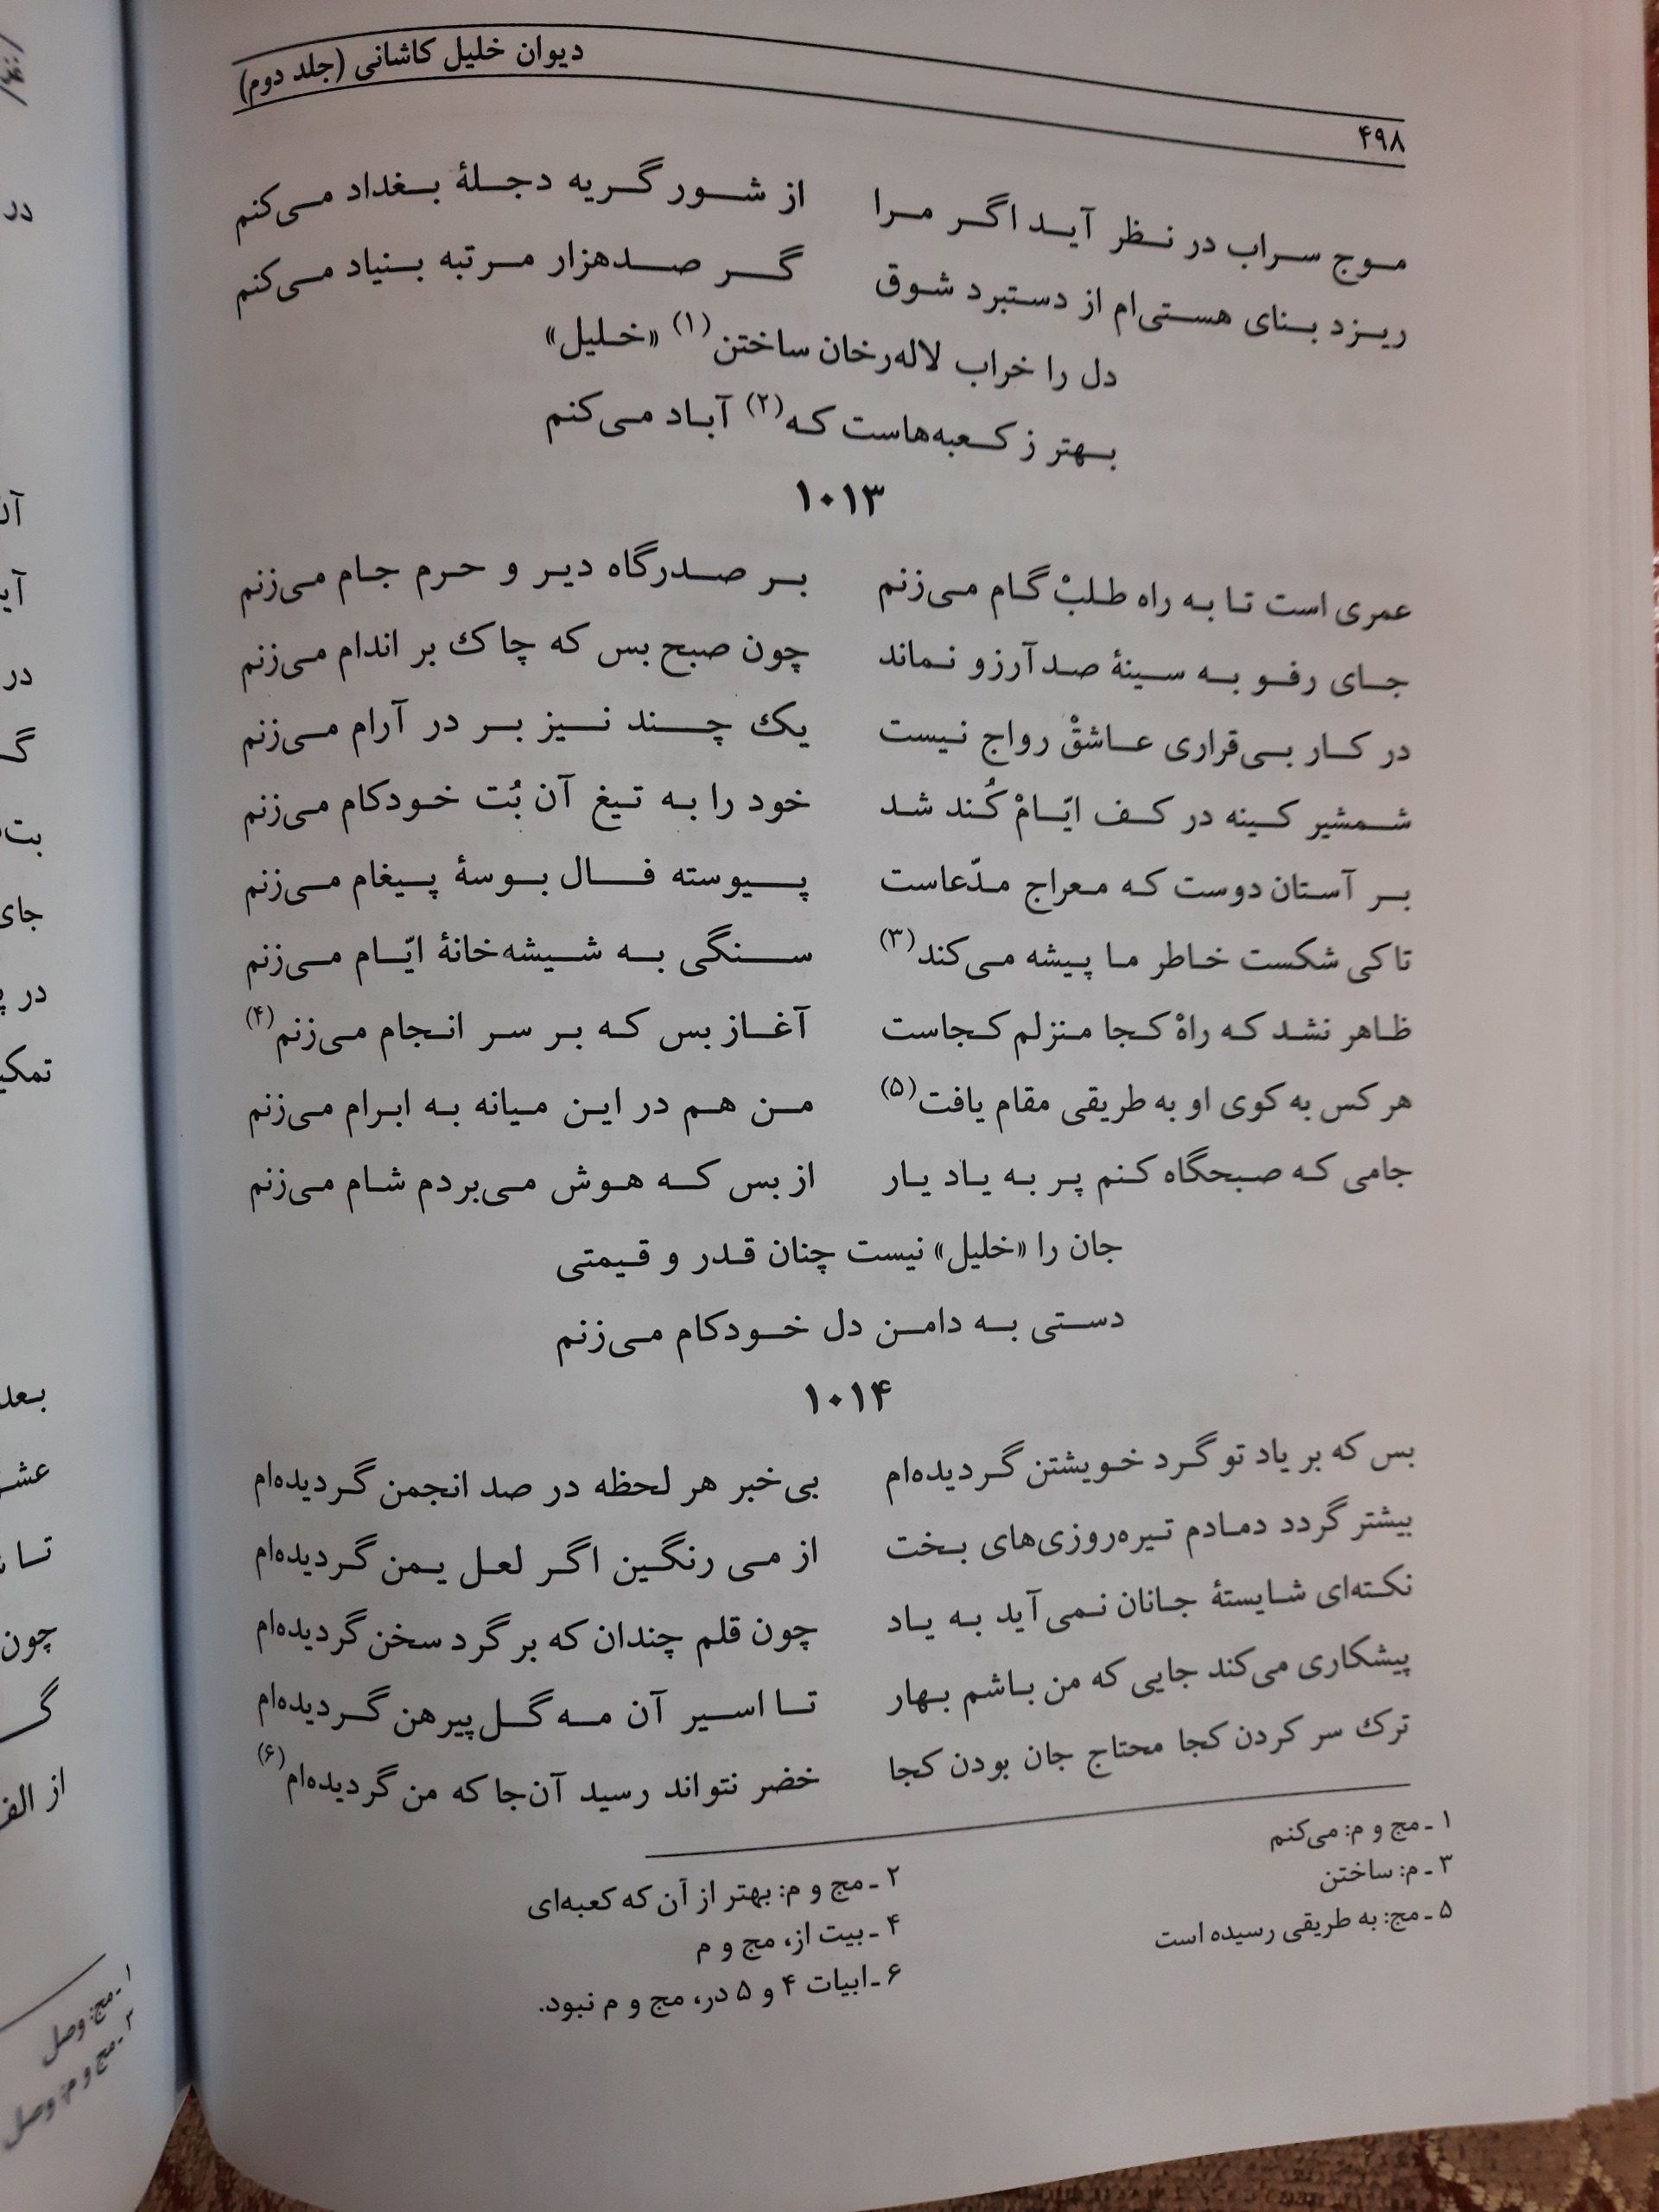 دیوان خلیل کاشانی (جلد دوم)
۴۹۸
موج سراب در نظر آید اگر مرا از شور گریه دجلهٔ بغداد می‌کنم
ریزد بنای هستی‌ام از دستبرد شوق گر صدهزار مرتبه بنیاد می‌کنم
دل را خراب لاله‌رخان ساختن(۱) «خلیل»
بهتر ز کعبه‌هاست که(۲) آباد می‌کنم
۱۰۱۳
عمری است تا به راه طلبْ گام می‌زنم بر صدرگاه دیر و حرم جام می‌زنم
جای رفو به سینهٔ صد آرزو نماند چون صبح بس که چاک بر اندام می‌زنم
در کار بی‌قراری عاشقْ رواج نیست یک چند نیز بر در آرام می‌زنم
شمشیر کینه در کف ایّامْ کُند شد خود را به تیغ آن بُت خودکام می‌زنم
بر آستان دوست که معراج مدّعاست پیوسته فال بوسهٔ پیغام می‌زنم
تا کی شکست خاطر ما پیشه می‌کند(۳) سنگی به شیشه‌خانهٔ ایّام می‌زنم
ظاهر نشد که راهْ کجا منزلم کجاست آغاز بس که بر سر انجام می‌زنم(۴)
هر کس به کوی او به طریقی مقام یافت(۵) من هم در این میانه به ابرام می‌زنم
جامی که صبحگاه کنم پر به یاد یار از بس که هوش می‌بردم شام می‌زنم
جان را «خلیل» نیست چنان قدر و قیمتی
دستی به دامن دل خودکام می‌زنم
۱۰۱۴
بس که بر یاد تو گرد خویشتن گردیده‌ام بی‌خبر هر لحظه در صد انجمن گردیده‌ام
بیشتر گردد دمادم تیره‌روزی‌های بخت از می رنگین اگر لعل یمن گردیده‌ام
نکته‌ای شایستهٔ جانان نمی‌آید به یاد چون قلم چندان که بر گرد سخن گردیده‌ام
پیشکاری می‌کند جایی که من باشم بهار تا اسیر آن مه گل‌پیرهن گردیده‌ام
ترک سر کردن کجا محتاج جان بودن کجا خضر نتواند رسید آن‌جا که من گردیده‌ام(۶)
۱ ـ مج و م: می‌کنم
۲ ـ مج و م: بهتر از آن که کعبه‌ای
۳ ـ م: ساختن
۴ ـ بیت از، مج و م
۵ ـ مج: به طریقی رسیده است
۶ ـ ابیات ۴ و ۵ در، مج و م نبود.
۱ ـ مج: وصل
۲ ـ مج و م: وصل